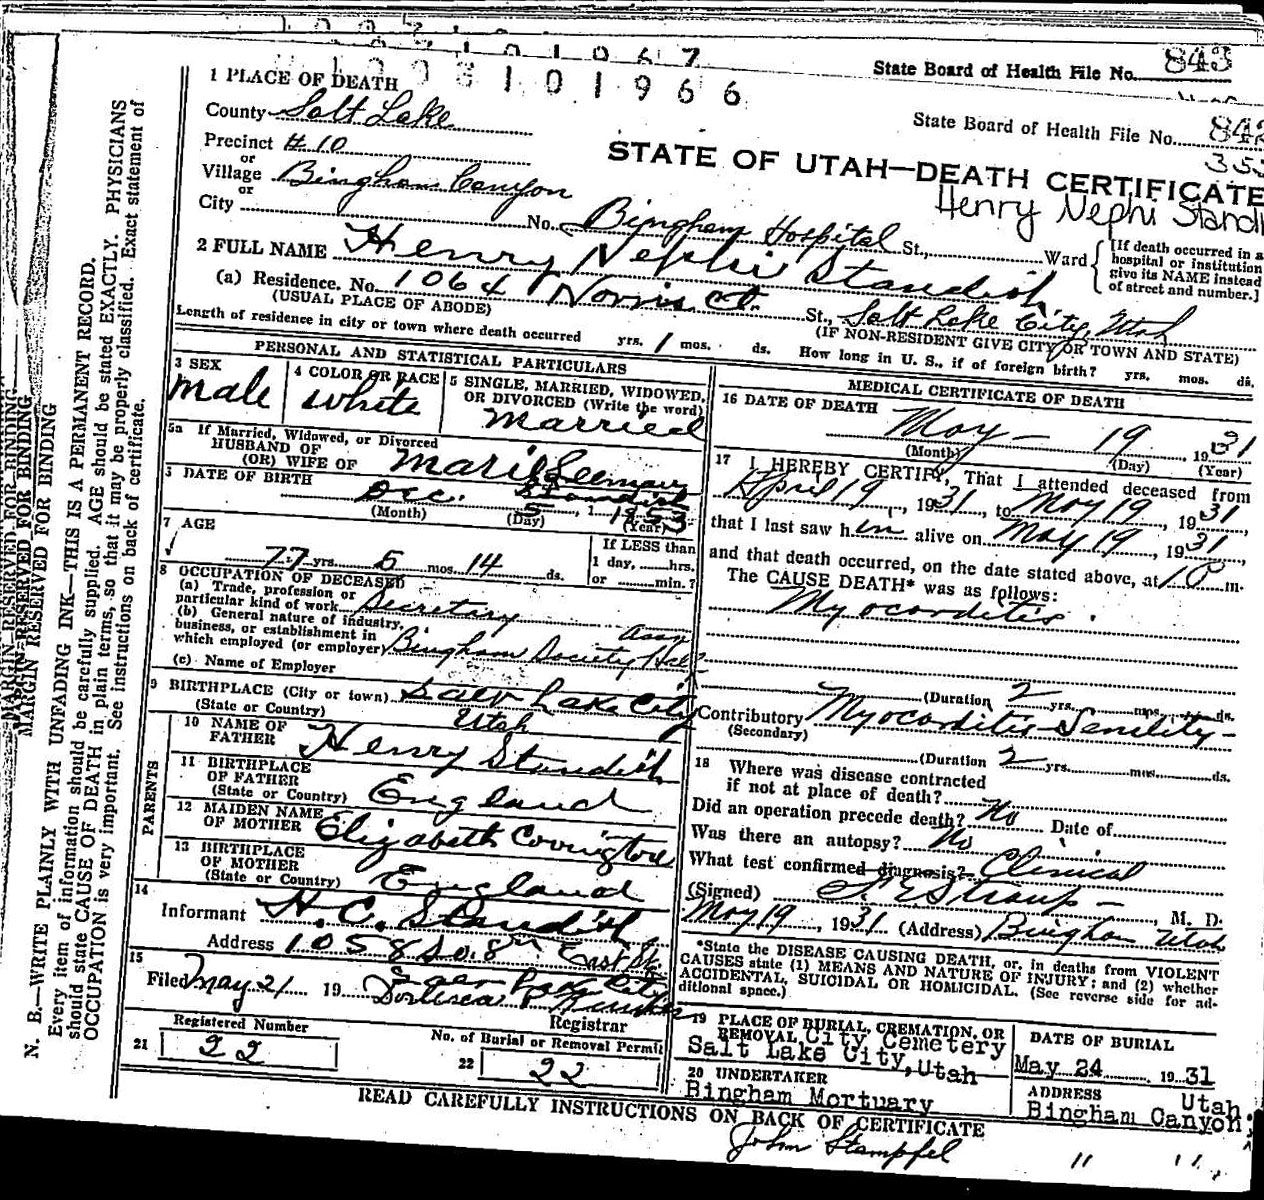 1 0 0 3 1 0 1 9 6 7
State Board of Health File No. 843
1 0 0 3 1 0 1 9 6 6
State Board of Health File No. 842
353
1 PLACE OF DEATH
County Salt Lake
Precinct # 10
or
Village Bingham Canyon
or
City
STATE OF UTAH—DEATH CERTIFICATE
Henry Nephi Standi
No. Bingham Hospital St., Ward
[If death occurred in a
hospital or institution
give its NAME instead
of street and number.]
2 FULL NAME Henry Nephi Standish
(a) Residence. No. 1064 Norris Ct. St., Salt Lake City, Utah
(USUAL PLACE OF ABODE)
(IF NON-RESIDENT GIVE CITY OR TOWN AND STATE)
Length of residence in city or town where death occurred yrs. 1 mos. ds. How long in U. S., if of foreign birth? yrs. mos. ds.
PERSONAL AND STATISTICAL PARTICULARS
3 SEX
male
4 COLOR OR RACE
white
5 SINGLE, MARRIED, WIDOWED,
OR DIVORCED (Write the word)
married
5a If Married, Widowed, or Divorced
HUSBAND OF
(OR) WIFE OF
Standish
DATE OF BIRTH
Dec. 5, 1853
(Month) (Day) (Year)
7 AGE
77 yrs. 5 mos. 14 ds.
If LESS than
1 day, hrs.
or min.?
8 OCCUPATION OF DECEASED
(a) Trade, profession or
particular kind of work Secretary
(b) General nature of industry,
business, or establishment in
which employed (or employer) Bingham Society Hall Assn
(c) Name of Employer
9 BIRTHPLACE (City or town) Salt Lake City
(State or Country) Utah
PARENTS
10 NAME OF
FATHER Henry Standish
11 BIRTHPLACE
OF FATHER
(State or Country) England
12 MAIDEN NAME
OF MOTHER Elizabeth Covington
13 BIRTHPLACE
OF MOTHER
(State or Country) England
14
Informant H. C. Standish
Address 1058 So. 8th East St.
Salt Lake City
15
Filed May 21 19
Registrar
Registered Number
21 22
No. of Burial or Removal Permit
22 22
MEDICAL CERTIFICATE OF DEATH
16 DATE OF DEATH
May — 19, 1931
(Month) (Day) (Year)
17 I HEREBY CERTIFY, That I attended deceased from
April 19, 1931, to May 19, 1931
that I last saw him alive on May 19, 1931
and that death occurred, on the date stated above, at 10 P m.
The CAUSE DEATH* was as follows:
Myocarditis.
(Duration 2 yrs. mos. ds.
Contributory Myocarditis-Senility-
(Secondary)
(Duration 2 yrs. mos. ds.
18 Where was disease contracted
if not at place of death?
Did an operation precede death? No Date of
Was there an autopsy? No
What test confirmed diagnosis? Clinical
(Signed) , M. D.
May 19, 1931 (Address) Bingham Utah
*State the DISEASE CAUSING DEATH, or, in deaths from VIOLENT
CAUSES state (1) MEANS AND NATURE OF INJURY; and (2) whether
ACCIDENTAL, SUICIDAL OR HOMICIDAL. (See reverse side for ad-
ditional space.)
19 PLACE OF BURIAL, CREMATION, OR
REMOVAL City Cemetery
Salt Lake City, Utah
DATE OF BURIAL
May 24 1931
20 UNDERTAKER
Bingham Mortuary
ADDRESS Utah.
Bingham Canyon.
READ CAREFULLY INSTRUCTIONS ON BACK OF CERTIFICATE
John Stampfel " "
MARGIN RESERVED FOR BINDING
MARGIN RESERVED FOR BINDING
MARGIN RESERVED FOR BINDING
N. B.—WRITE PLAINLY WITH UNFADING INK—THIS IS A PERMANENT RECORD.
Every item of information should be carefully supplied. AGE should be stated EXACTLY. PHYSICIANS
should state CAUSE OF DEATH in plain terms, so that it may be properly classified. Exact statement of
OCCUPATION is very important. See instructions on back of certificate.